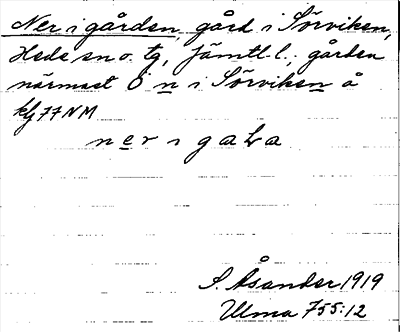 Ner i gården, gård i Sörviken,
Hede sn o. tg, Jämtl. l.; gården
närmast Ö n i Sörviken å
kfg 77 NM
n e r i g a L a
S. Åsander 1919
Ulma 755:12